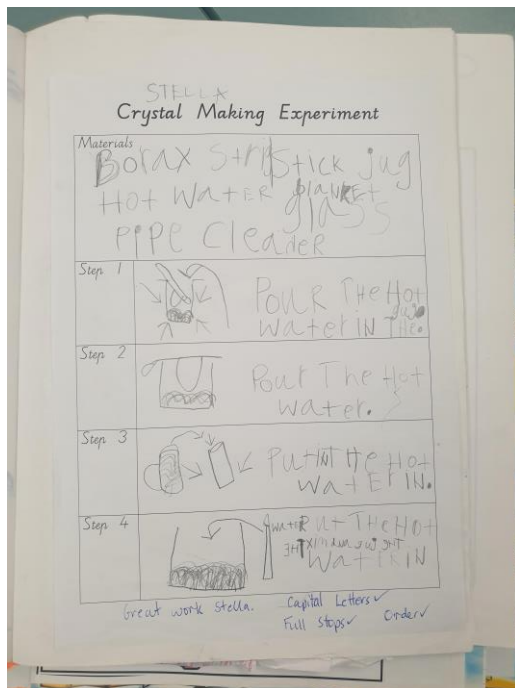 STELLA
Crystal Making Experiment
Materials
Borax Stri Stick jug
HOt WateR blanket
glass
PIPE Cleader
Step 1
POUR THe HOt
jug
WateR IN THe.
Step 2
Pour The Hot
water.
Step 3
PUtINt He HOt
WatER IN.
Step 4
WateR PUT THE HOt
THE jug
WateR IN
Great work Stella.
Capital Letters ✓
Full Stops ✓
Order ✓